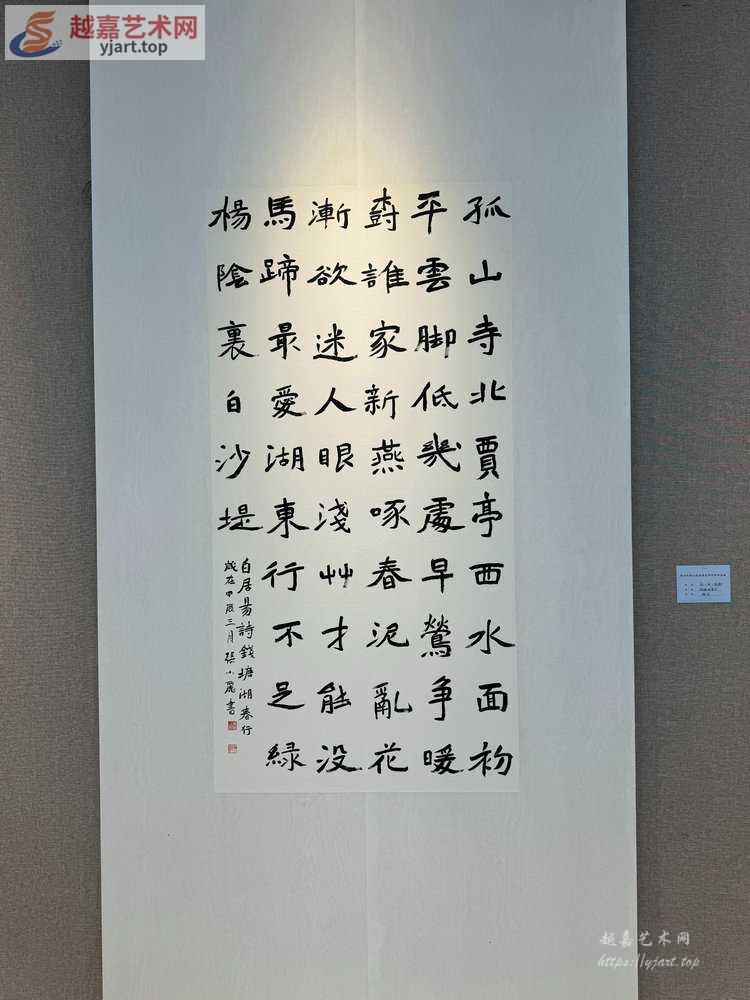 越嘉艺术网
yjart.top
孤山寺北賈亭西水面初
平雲脚低幾處早鶯争暖
樹誰家新燕啄春泥亂花
漸欲迷人眼淺艸才能没
馬蹄最愛湖東行不足緑
楊陰裏白沙堤
白居易詩錢塘湖春行
歲在甲辰三月張小麗書
越嘉艺术网
https://yjart.top